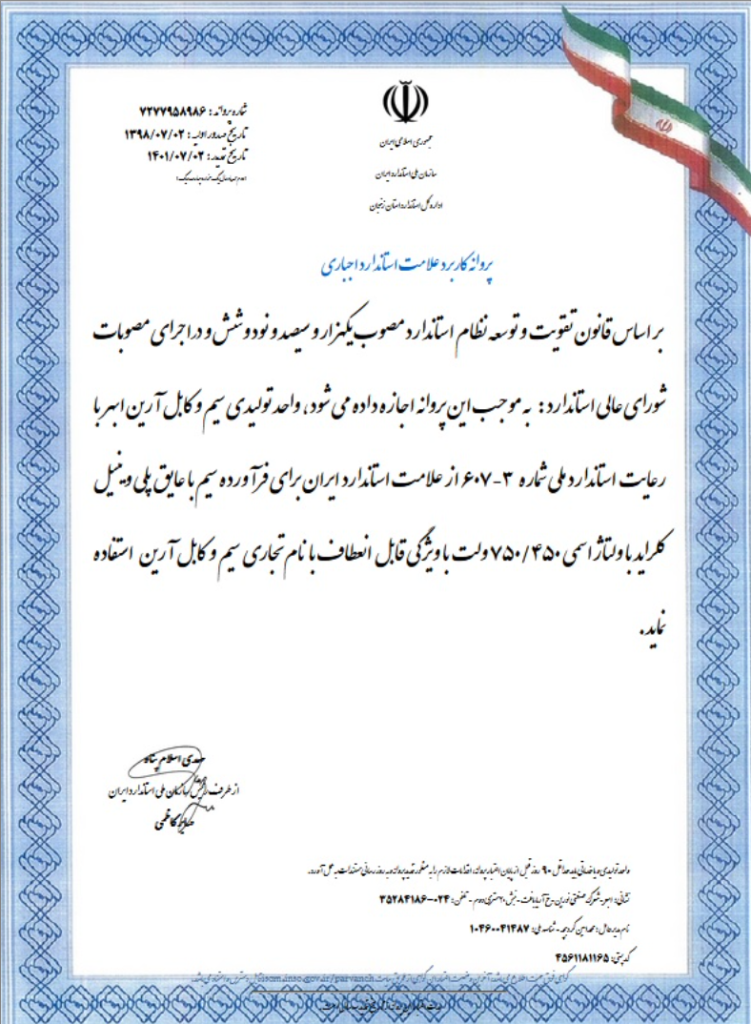 شماره پروانه: ۷۲۷۷۹۵۸۹۸۶
تاریخ صدور اولیه: ۱۳۹۸/۰۷/۰۲
تاریخ تمدید: ۱۴۰۱/۰۷/۰۲
جمهوری اسلامی ایران
سازمان ملی استاندارد ایران
اداره کل استاندارد استان زنجان
پروانه کاربرد علامت استاندارد اجباری
بر اساس قانون تقویت و توسعه نظام استاندارد مصوب یکهزار و سیصد و نود و شش و در اجرای مصوبات
شورای عالی استاندارد: به موجب این پروانه اجازه داده می شود، واحد تولیدی سیم و کابل آرین ابهر با
رعایت استاندارد ملی شماره ۳-۶۰۷ از علامت استاندارد ایران برای فرآورده سیم با عایق پلی وینیل
کلراید با ولتاژ اسمی ۷۵۰/۴۵۰ ولت با ویژگی قابل انعطاف با نام تجاری سیم و کابل آرین استفاده
نماید.
مهدی اسلام پناه
از طرف رئیس سازمان ملی استاندارد ایران
کاظمی
واحد تولیدی و یا خدماتی باید حداقل ۹۰ روز قبل از پایان اعتبار پروانه، اقدامات لازم را به منظور تمدید پروانه و به روز رسانی مستندات به عمل آورد.
نشانی: ابهر - شهرک صنعتی نورین - خ آریابافت - نبش ۲۰ متری دوم - تلفن: ۰۲۴-۳۵۲۸۴۱۸۶
نام مدیر عامل: محمد امین کردبچه - شناسه ملی: ۱۰۴۶۰۰۴۱۴۸۷
کد پستی: ۴۵۶۱۱۸۱۱۶۵